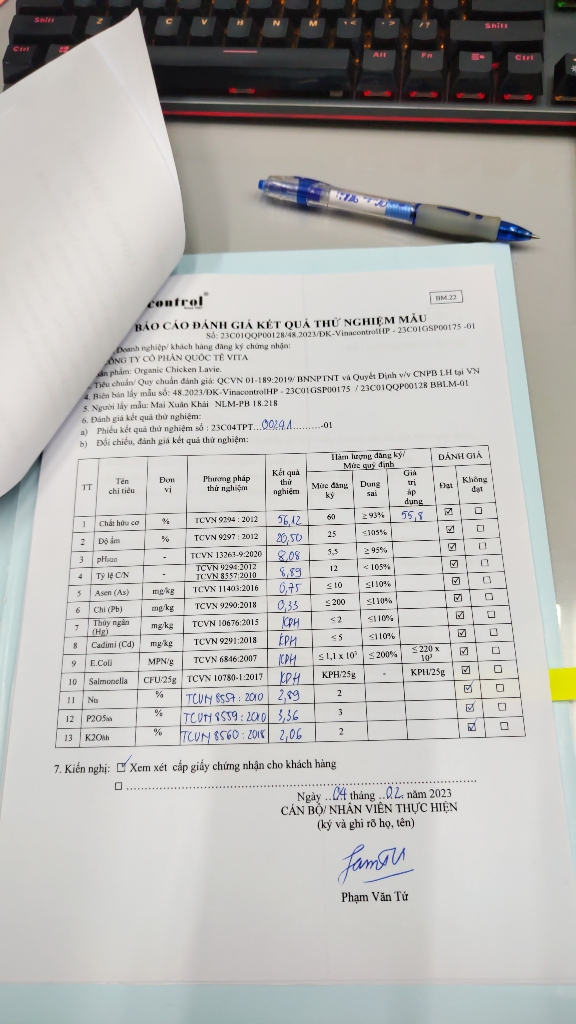 Shift Z C V B N M < > Shift
Ctrl Alt Fn Ctrl
control
BM.22
BÁO CÁO ĐÁNH GIÁ KẾT QUẢ THỬ NGHIỆM MẪU
Số: 23C01QQP00128/48.2023/ĐK-VinacontrolHP - 23C01GSP00175 -01
Doanh nghiệp/ khách hàng đăng ký chứng nhận:
CÔNG TY CỔ PHẦN QUỐC TẾ VITA
phẩm: Organic Chicken Lavie.
Tiêu chuẩn/ Quy chuẩn đánh giá: QCVN 01-189:2019/ BNNPTNT và Quyết Định v/v CNPB LH tại VN
4. Biên bản lấy mẫu số: 48.2023/ĐK-VinacontrolHP - 23C01GSP00175 / 23C01QQP00128 BBLM-01
5. Người lấy mẫu: Mai Xuân Khải NLM-PB 18.218
6. Đánh giá kết quả thử nghiệm:
a) Phiếu kết quả thử nghiệm số : 23C04TPT...00291...............-01
b) Đối chiếu, đánh giá kết quả thử nghiệm:
TT Tên chỉ tiêu Đơn vị Phương pháp thử nghiệm Kết quả thử nghiệm Hàm lượng đăng ký/ Mức quy định ĐÁNH GIÁ
Mức đăng ký Dung sai Giá trị áp dụng Đạt Không đạt
1 Chất hữu cơ % TCVN 9294 : 2012 56,12 60 ≥ 93% 55,8 ☑ ☐
2 Độ ẩm % TCVN 9297 : 2012 20,50 25 ≤105% ☑ ☐
3 pHH2O - TCVN 13263-9:2020 8,08 5,5 ≥ 95% ☑ ☐
4 Tỷ lệ C/N - TCVN 9294:2012 TCVN 8557:2010 8,89 12 < 105% ☑ ☐
5 Asen (As) mg/kg TCVN 11403:2016 0,75 ≤ 10 ≤110% ☑ ☐
6 Chì (Pb) mg/kg TCVN 9290:2018 0,33 ≤ 200 ≤110% ☑ ☐
7 Thủy ngân (Hg) mg/kg TCVN 10676:2015 KPH ≤ 2 ≤110% ☑ ☐
8 Cadimi (Cd) mg/kg TCVN 9291:2018 KPH ≤ 5 ≤110% ☑ ☐
9 E.Coli MPN/g TCVN 6846:2007 KPH ≤ 1,1 x 10³ ≤ 200% ≤ 220 x 10³ ☑ ☐
10 Salmonella CFU/25g TCVN 10780-1:2017 KPH KPH/25g - KPH/25g ☑ ☐
11 Nts % TCVN 8557 : 2010 2,89 2 ☑ ☐
12 P2O5hh % TCVN 8559 : 2010 3,36 3 ☑ ☐
13 K2Ohh % TCVN 8560 : 2018 2,06 2 ☑ ☐
7. Kiến nghị: ☑ Xem xét cấp giấy chứng nhận cho khách hàng
☐ ................................................................
Ngày ..04 tháng ..02. năm 2023
CÁN BỘ/ NHÂN VIÊN THỰC HIỆN
(ký và ghi rõ họ, tên)
Phạm Văn Tứ